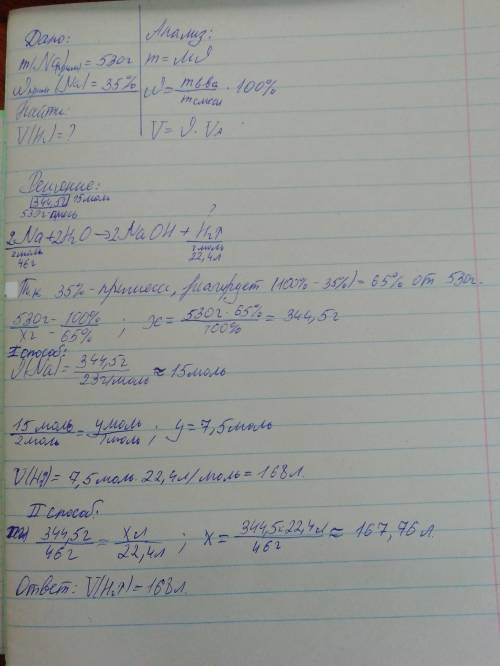 Дано:
m(Na)прим = 530г
ω прим (Na) = 35%
Найти:
V(H₂) = ?
Анализ:
m = Mν
ω = m в-ва / m смеси · 100%
V = ν · Vₙ
Решение:
344,5г 15моль
530г
?
2Na + 2H₂O → 2NaOH + H₂↑
2моль 1моль
46г 22,4л
Т.к 35% - примеси, реагирует (100% - 35%) = 65% от 530г.
530г - 100% / xг - 65% ; x = 530г · 65% / 100% = 344,5г
I способ:
ν(Na) = 344,5г / 23г/моль ≈ 15моль
15 моль / 2 моль = y моль / 1 моль ; y = 7,5моль
V(H₂) = 7,5моль · 22,4л/моль = 168л.
II способ:
344,5г / 46г = xл / 22,4л ; x = 344,5г · 22,4л / 46г ≈ 167,76л.
Ответ: V(H₂↑) = 168л.